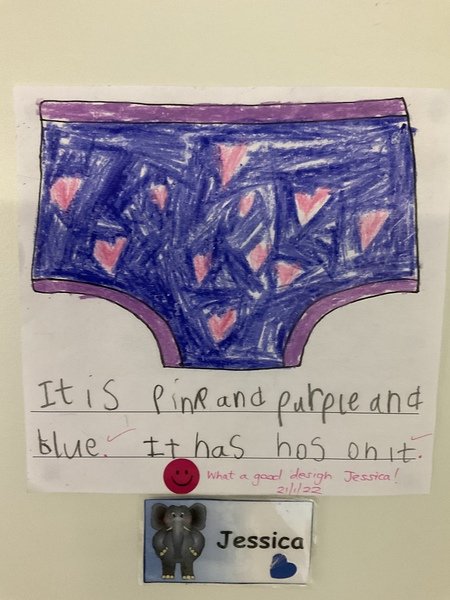 It is pink and purple and
blue. It has hos on it.
What a good design Jessica!
21/1/22
Jessica